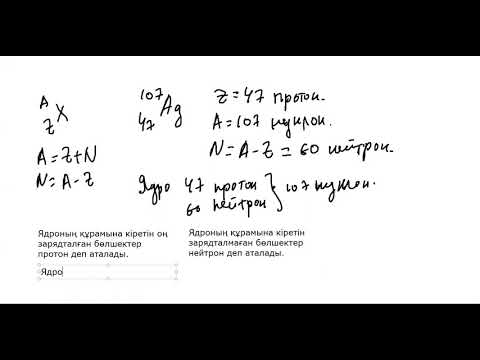 A
Z X
107
47 Ag
Z = 47 протон.
A = 107 нуклон.
A = Z+N
N = A-Z = 60 нейтрон.
N = A-Z
Ядро 47 протон
60 нейтрон } 107 нуклон.
Ядроның құрамына кіретін оң
зарядталған бөлшектер
протон деп аталады.
Ядроның құрамына кіретін
зарядталмаған бөлшектер
нейтрон деп аталады.
Ядро